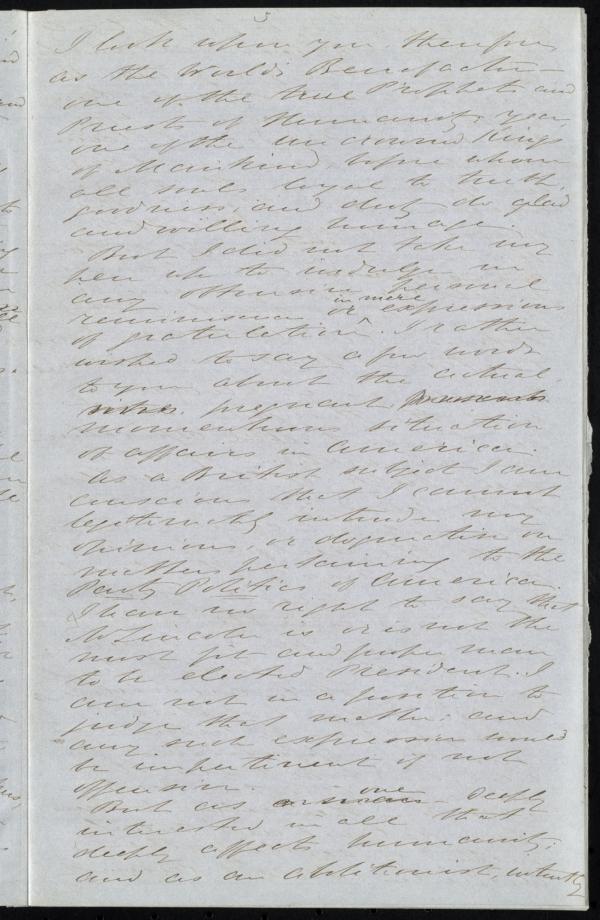 5
I look upon you, therefore,
as the World's Benefactor—
one of the true Prophets and
Priests of Humanity, yea
one of the uncrowned Kings
of Mankind, before whom
all souls loyal to truth,
goodness, and duty do glad
and willing homage.
But I did not take my
pen up to indulge in
any offensive personal
reminiscence or in mere expressions
of gratulation. I rather
wished to say a few words
to you about the actual
pregnant
momentous situation
of affairs in America.
As a British subject I am
conscious that I cannot
legitimately intrude my
opinions, or dogmatise on
matters pertaining to the
Party Politics of America.
I have no right to say that
Mr Lincoln is or is not the
most fit and proper man
to be elected President. I
am not in a position to
judge that matter: and
any such expression would
be impertinent if not
offensive.
But as one deeply
interested in all that
deeply affects humanity;
and as an abolitionist, intently